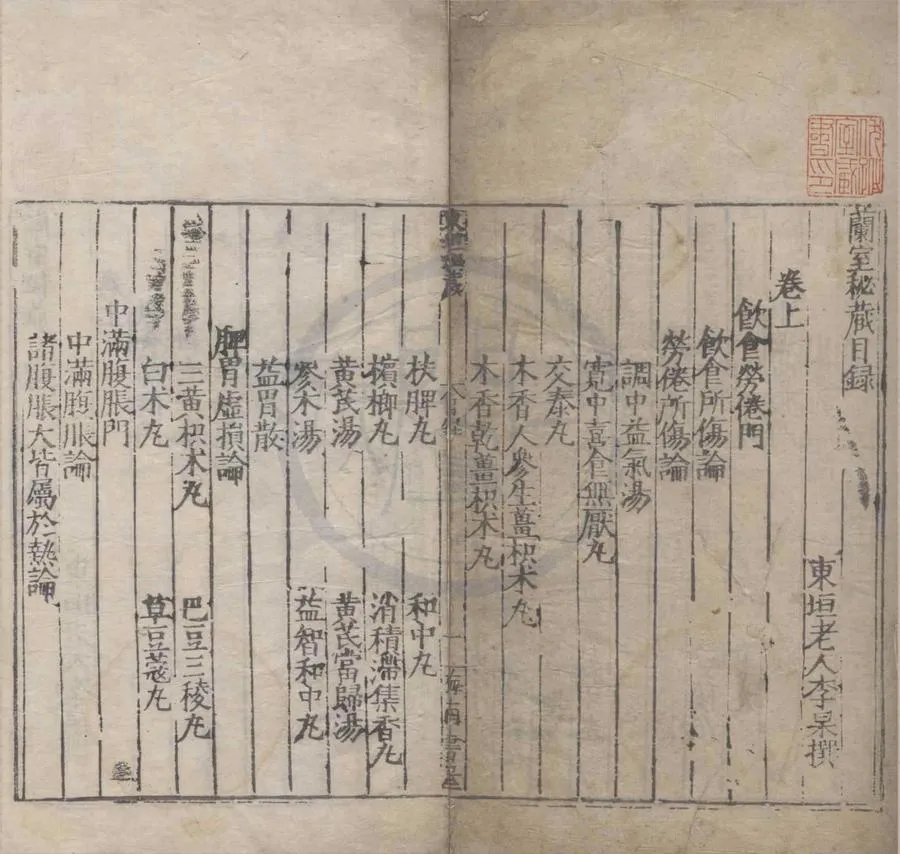 蘭室秘藏目録
東垣老人李杲撰
卷上
飲食勞倦門
飲食所傷論
勞倦所傷論
調中益氣湯
寬中喜食無厭丸
交泰丸
木香人參生薑枳朮丸
木香乾薑枳朮丸
扶脾丸
和中丸
檳榔丸
消積滯集香丸
黃芪湯
黃芪當歸湯
參朮湯
益智和中丸
益胃散
脾胃虛損論
三黃枳朮丸
巴豆三稜丸
白朮丸
草豆蔻丸
中滿腹脹門
中滿腹脹論
諸腹脹大皆屬於熱論